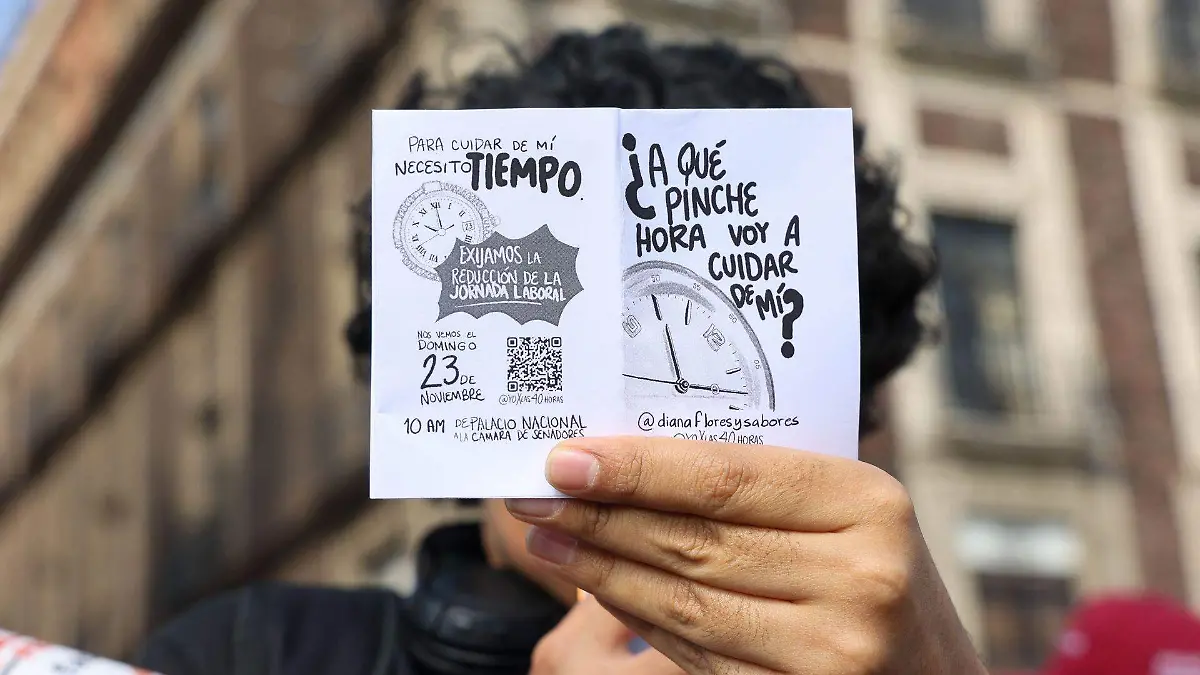 PARA CUIDAR DE MÍ
NECESITO TIEMPO.
EXIJAMOS LA
REDUCCIÓN DE LA
JORNADA LABORAL
NOS VEMOS EL
DOMINGO
23 DE
NOVIEMBRE
@YOXLAS40HORAS
10 AM DE PALACIO NACIONAL
A LA CÁMARA DE SENADORES
¿A QUÉ
PINCHE
HORA VOY A
CUIDAR
DE MÍ?
@dianafloresysabores
@YOXLAS40HORAS